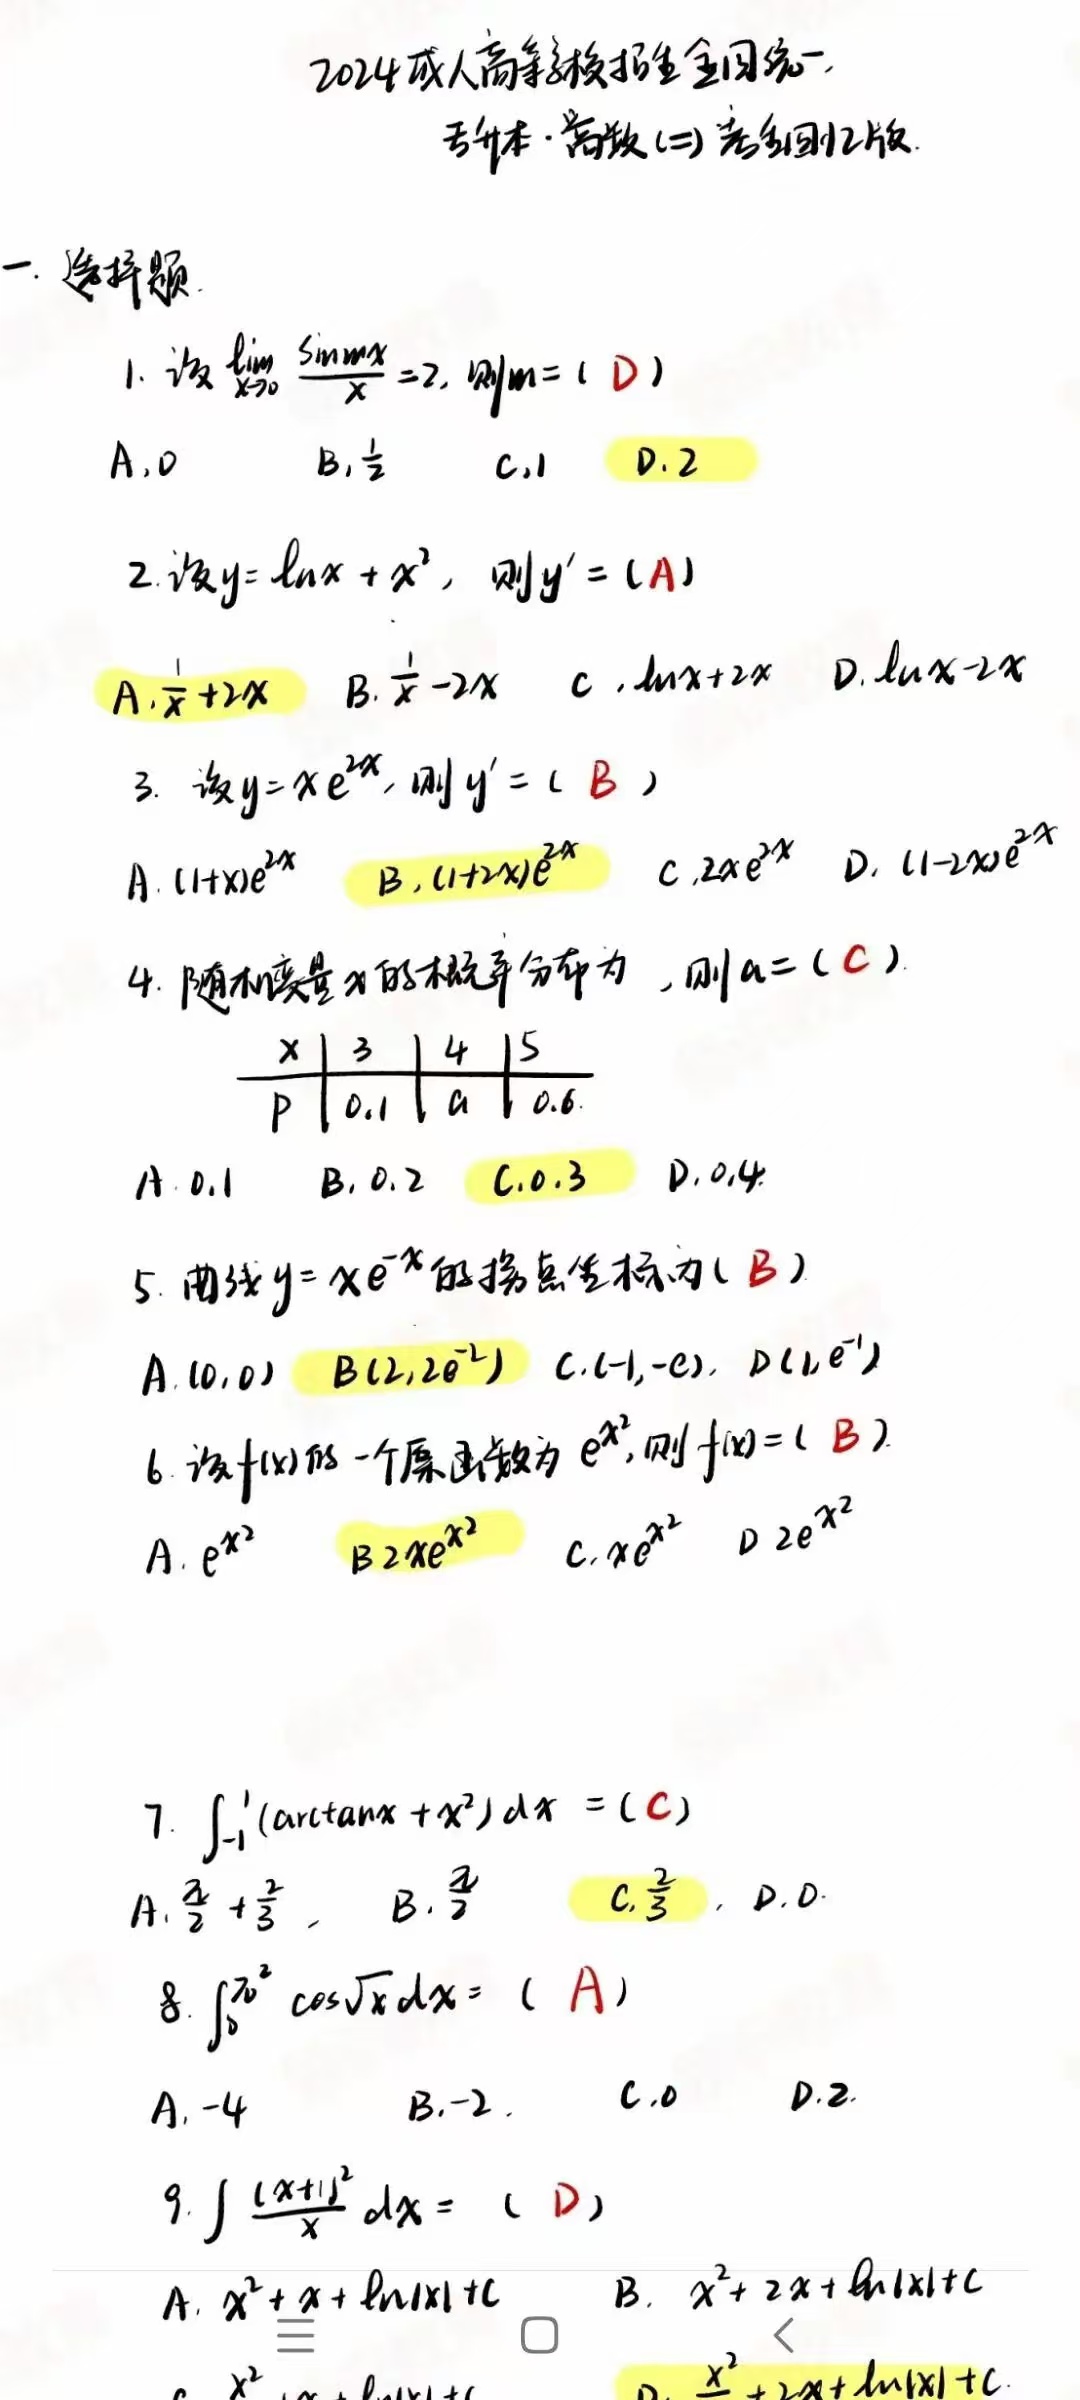 2024成人高等学校招生全国统一
专升本·高数(二)考生回忆版.
一. 选择题.
1. 设 lim x→0 sinmx/x =2, 则m=( D )
A.0 B.1/2 C.1 D.2
2.设y=lnx+x², 则y'=(A)
A.1/x+2x B.1/x-2x C.lnx+2x D.lnx-2x
3. 设y=xe^{2x}, 则y'=( B )
A.(1+x)e^{2x} B.(1+2x)e^{2x} C.2xe^{2x} D.(1-2x)e^{2x}
4. 随机变量x的概率分布为,则a=( C ).
x 3 4 5
P 0.1 a 0.6.
A.0.1 B.0.2 C.0.3 D.0.4.
5. 曲线y=xe^{-x}的拐点坐标为( B )
A.(0,0) B(2,2e^{-2}) C.(-1,-e). D(1,e^{-1})
6.设f(x)的一个原函数为e^{x²},则f(x)=( B ).
A. e^{x²} B 2xe^{x²} C. xe^{x²} D 2e^{x²}
7. ∫_{-1}^{1}(arctanx+x²)dx =(C)
A.π/2+2/3, B.π/2 C.2/3. D.0.
8. ∫_{0}^{π²} cos√x dx=( A )
A.-4 B.-2. C.0 D.2.
9. ∫ (x+1)²/x dx= ( D )
A. x²+x+ln|x|+C B. x²+2x+ln|x|+C
C. x²/ +x+ln|x|+C D. x²/ +2x+ln|x|+C.